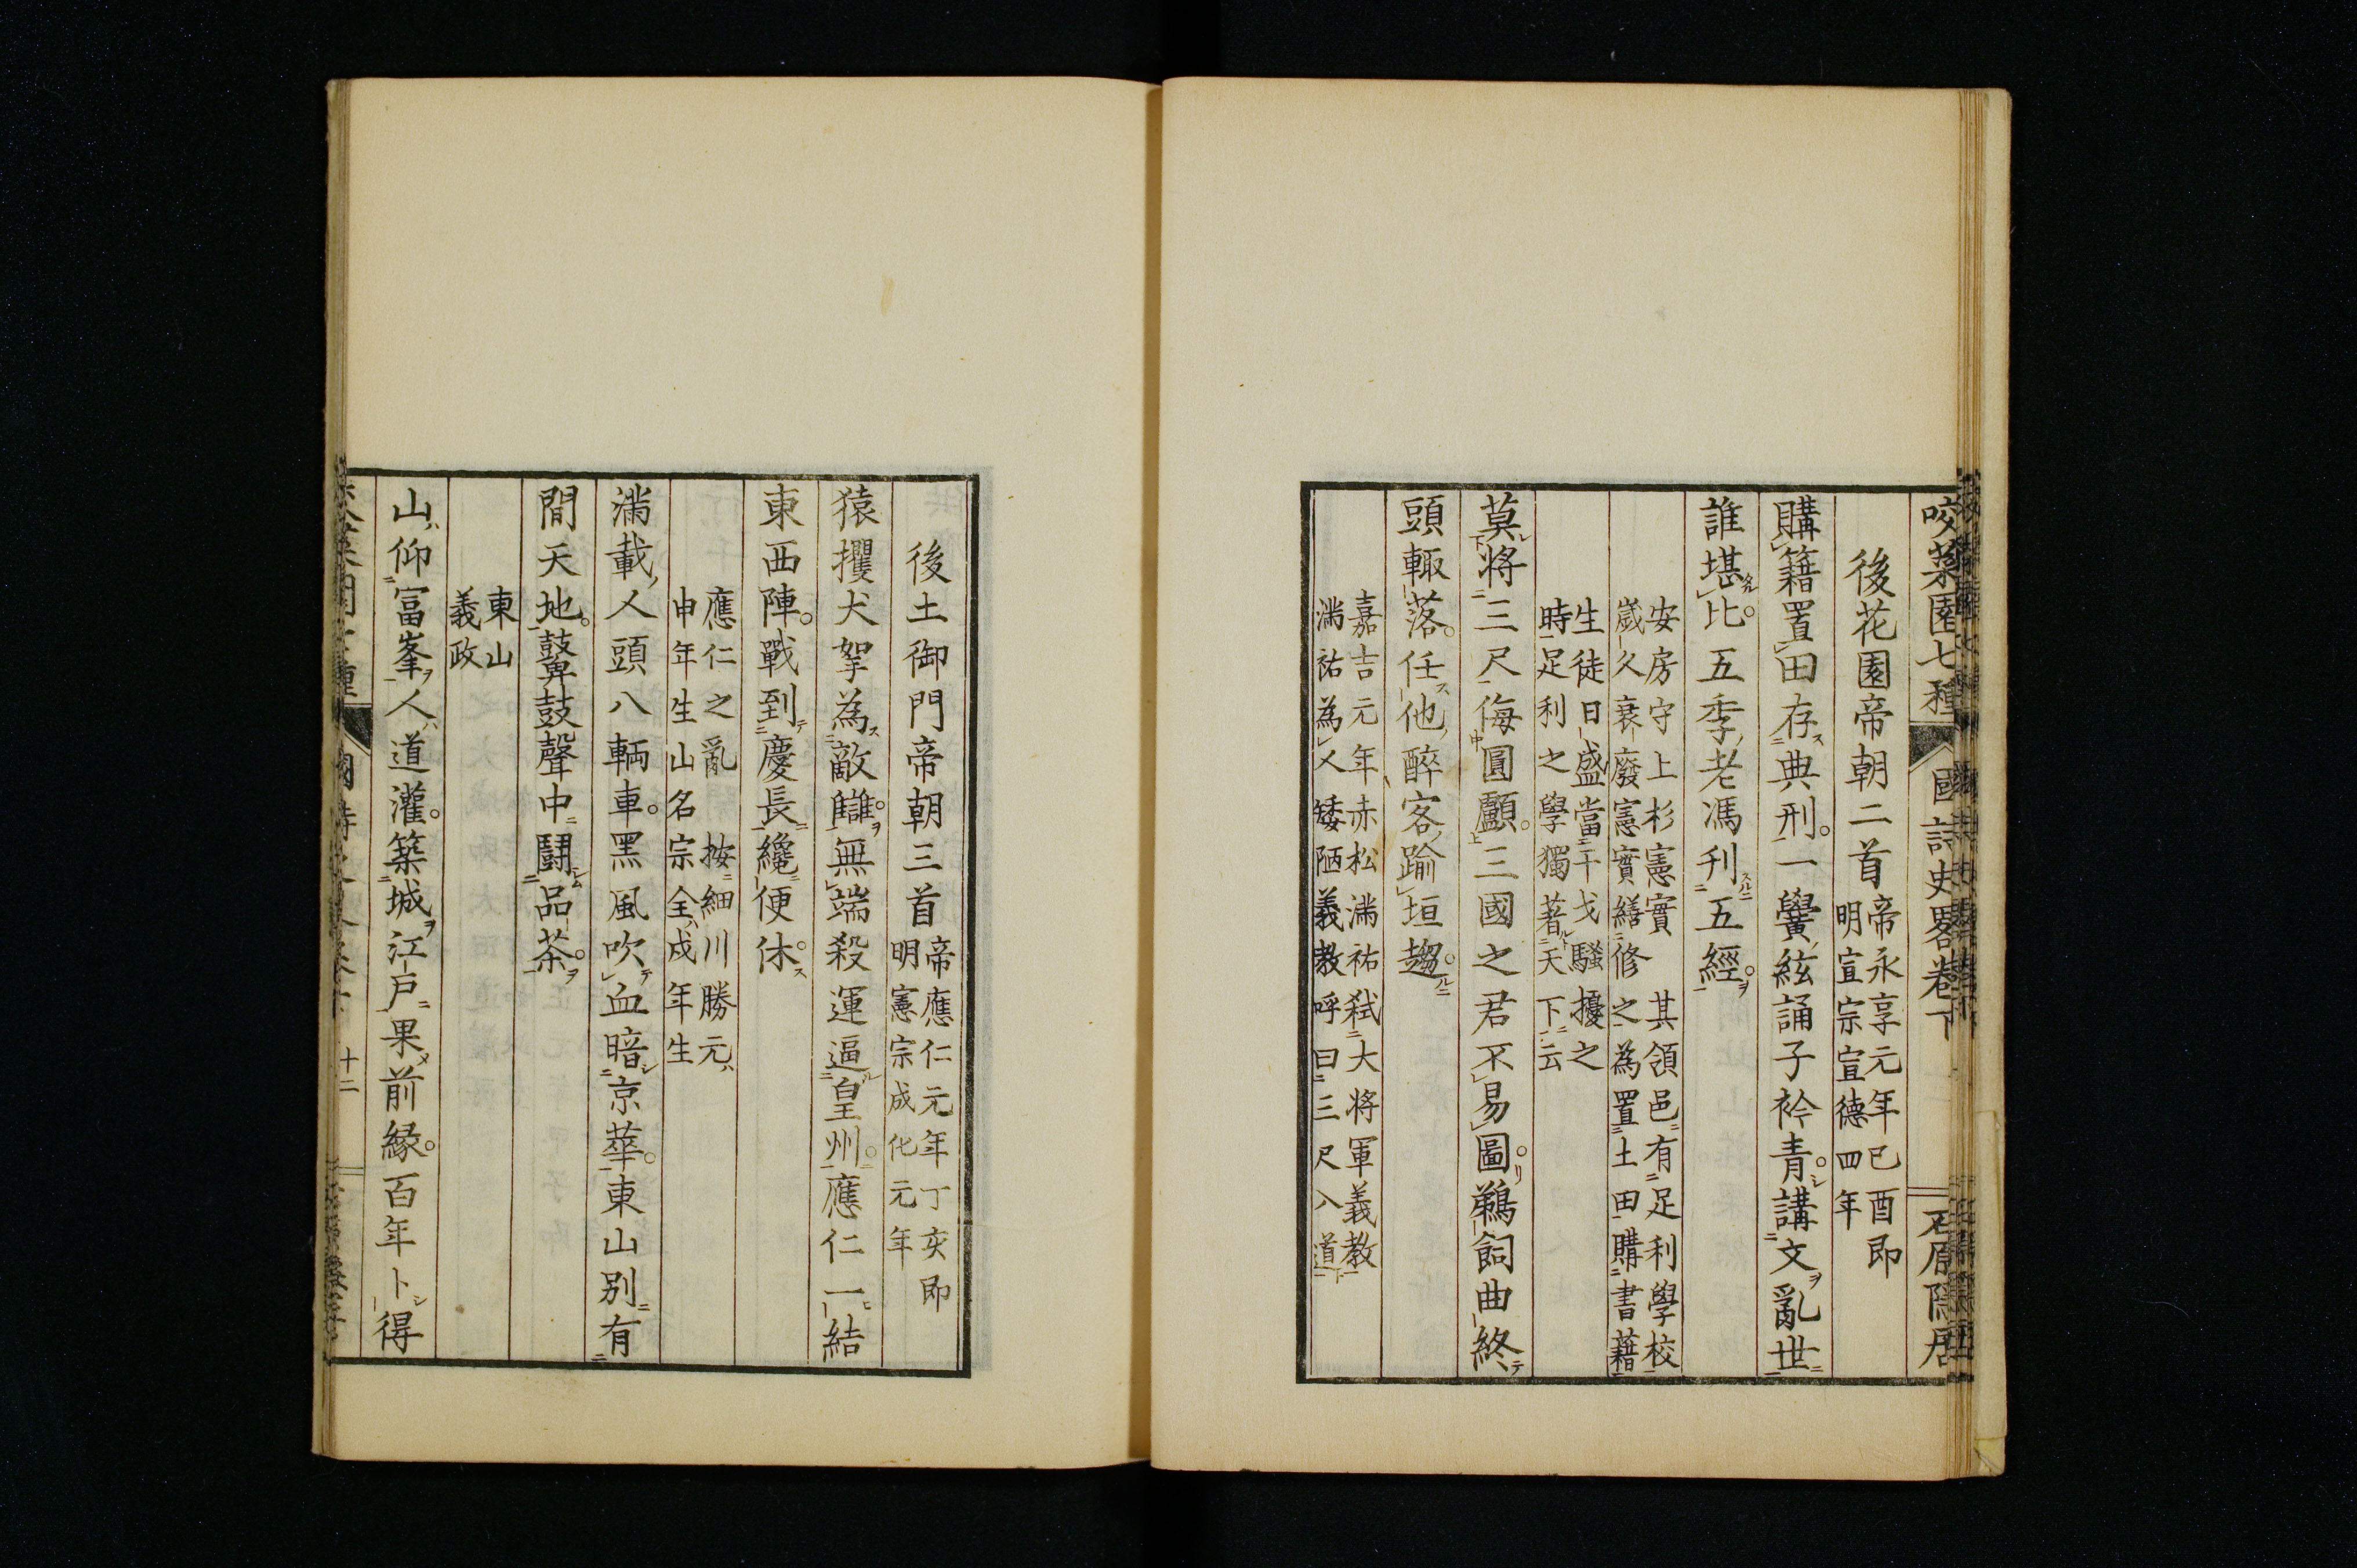 咬菜園七種 國詩史畧卷下 石居隱居
後花園帝朝二首 帝永享元年己酉即
明宣宗宣德四年
購籍置田存典刑。一黌絃誦子衿青。講文亂世
誰堪比。五季老馮刊五經。
安房守上杉憲實 其領邑有足利學校
嵗久衰廢憲實繕修之為置土田購書藉
生徒日盛當干戈騷擾之
時足利之學獨著天下云
莫將三尺侮圓顱。三國之君不易圖。鵜飼曲終
頭輙落。任他醉客踰垣趨。
嘉吉元年赤松滿祐弑大将軍義教
滿祐為人矮陋義教呼曰三尺入道
後土御門帝朝三首 帝應仁元年丁亥即
明憲宗成化元年
猿攫犬拏為敵讎。無端殺運逼皇州。應仁一結
東西陣。戰到慶長纔便休。
應仁之亂 按細川勝元
申年生山名宗全戌年生
滿載人頭八輌車。黑風吹血暗京華。東山別有
間天地。鼙鼓聲中鬪品茶。
東山
義政
山仰富峯人道灌。築城江戶果前緣。百年卜得
十二